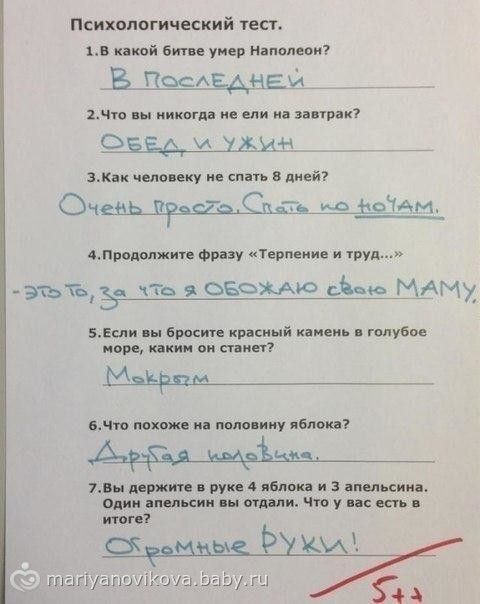 Психологический тест.
1.В какой битве умер Наполеон?
В ПОСЛЕДНЕЙ
2.Что вы никогда не ели на завтрак?
ОБЕД И УЖИН
3.Как человеку не спать 8 дней?
Очень просто. Спать по НОЧАМ.
4.Продолжите фразу «Терпение и труд...»
-ЭТО ТО, за что я ОБОЖАЮ свою МАМУ.
5.Если вы бросите красный камень в голубое
море, каким он станет?
Мокрым
6.Что похоже на половину яблока?
Другая половина.
7.Вы держите в руке 4 яблока и 3 апельсина.
Один апельсин вы отдали. Что у вас есть в
итоге?
Огромные РУКИ!
5++
mariyanovikova.baby.ru